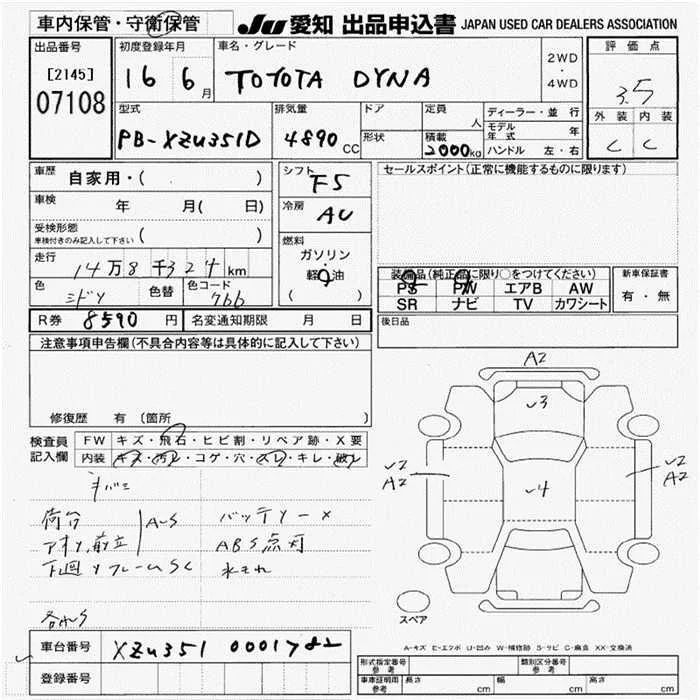 車内保管・守衛保管
JU 愛知 出品申込書 JAPAN USED CAR DEALERS ASSOCIATION
出品番号
[2145]
07108
初度登録年月
16 6月
車名・グレード
TOYOTA DYNA
2WD
・
4WD
評価点
3.5
外装 内装
C C
型式
PB-XZU351D
排気量
4890 CC
ドア
形状
定員
人
積載
2000kg
ディーラー・並 行
モデル年式 年
ハンドル 左・右
車歴
自家用・( )
車検
年 月( 日)
受検形態
車検付きのみ記入して下さい ( )
走行
14万8千324km
色
ミドリ
色替
色コード
7bb
シフト
F5
冷房
AU
燃料
ガソリン
・
軽油
( )
セールスポイント(正常に機能するものに限ります)
装備品(純正品に限り○をつけてください)
PS PW エアB AW
SR ナビ TV カワシート
新車保証書
有・無
後日品
R券 8590 円
名変通知期限 月 日
注意事項申告欄(不具合内容等は具体的に記入して下さい)
修復歴 有 (箇所 )
検査員
記入欄
FW キズ・飛石・ヒビ割・リペア跡・X要
内装 キズ・汚レ・コゲ・穴・スレ・キレ・破レ
荷台
アオリ,前立
A-S
下回リフレームSC
バッテリーX
ABS点灯
水モれ
車台番号
XZU351 0001782
登録番号
A2
√3
√4
√2
A2
√2
A2
スペア
A-キズ E-エクボ U-凹み W-補修跡 S-サビ C-腐食 XX-交換済
形式指定番号
参考
類別区分番号
参考
車庫証明用
参考
長さ cm
幅 cm
高さ cm